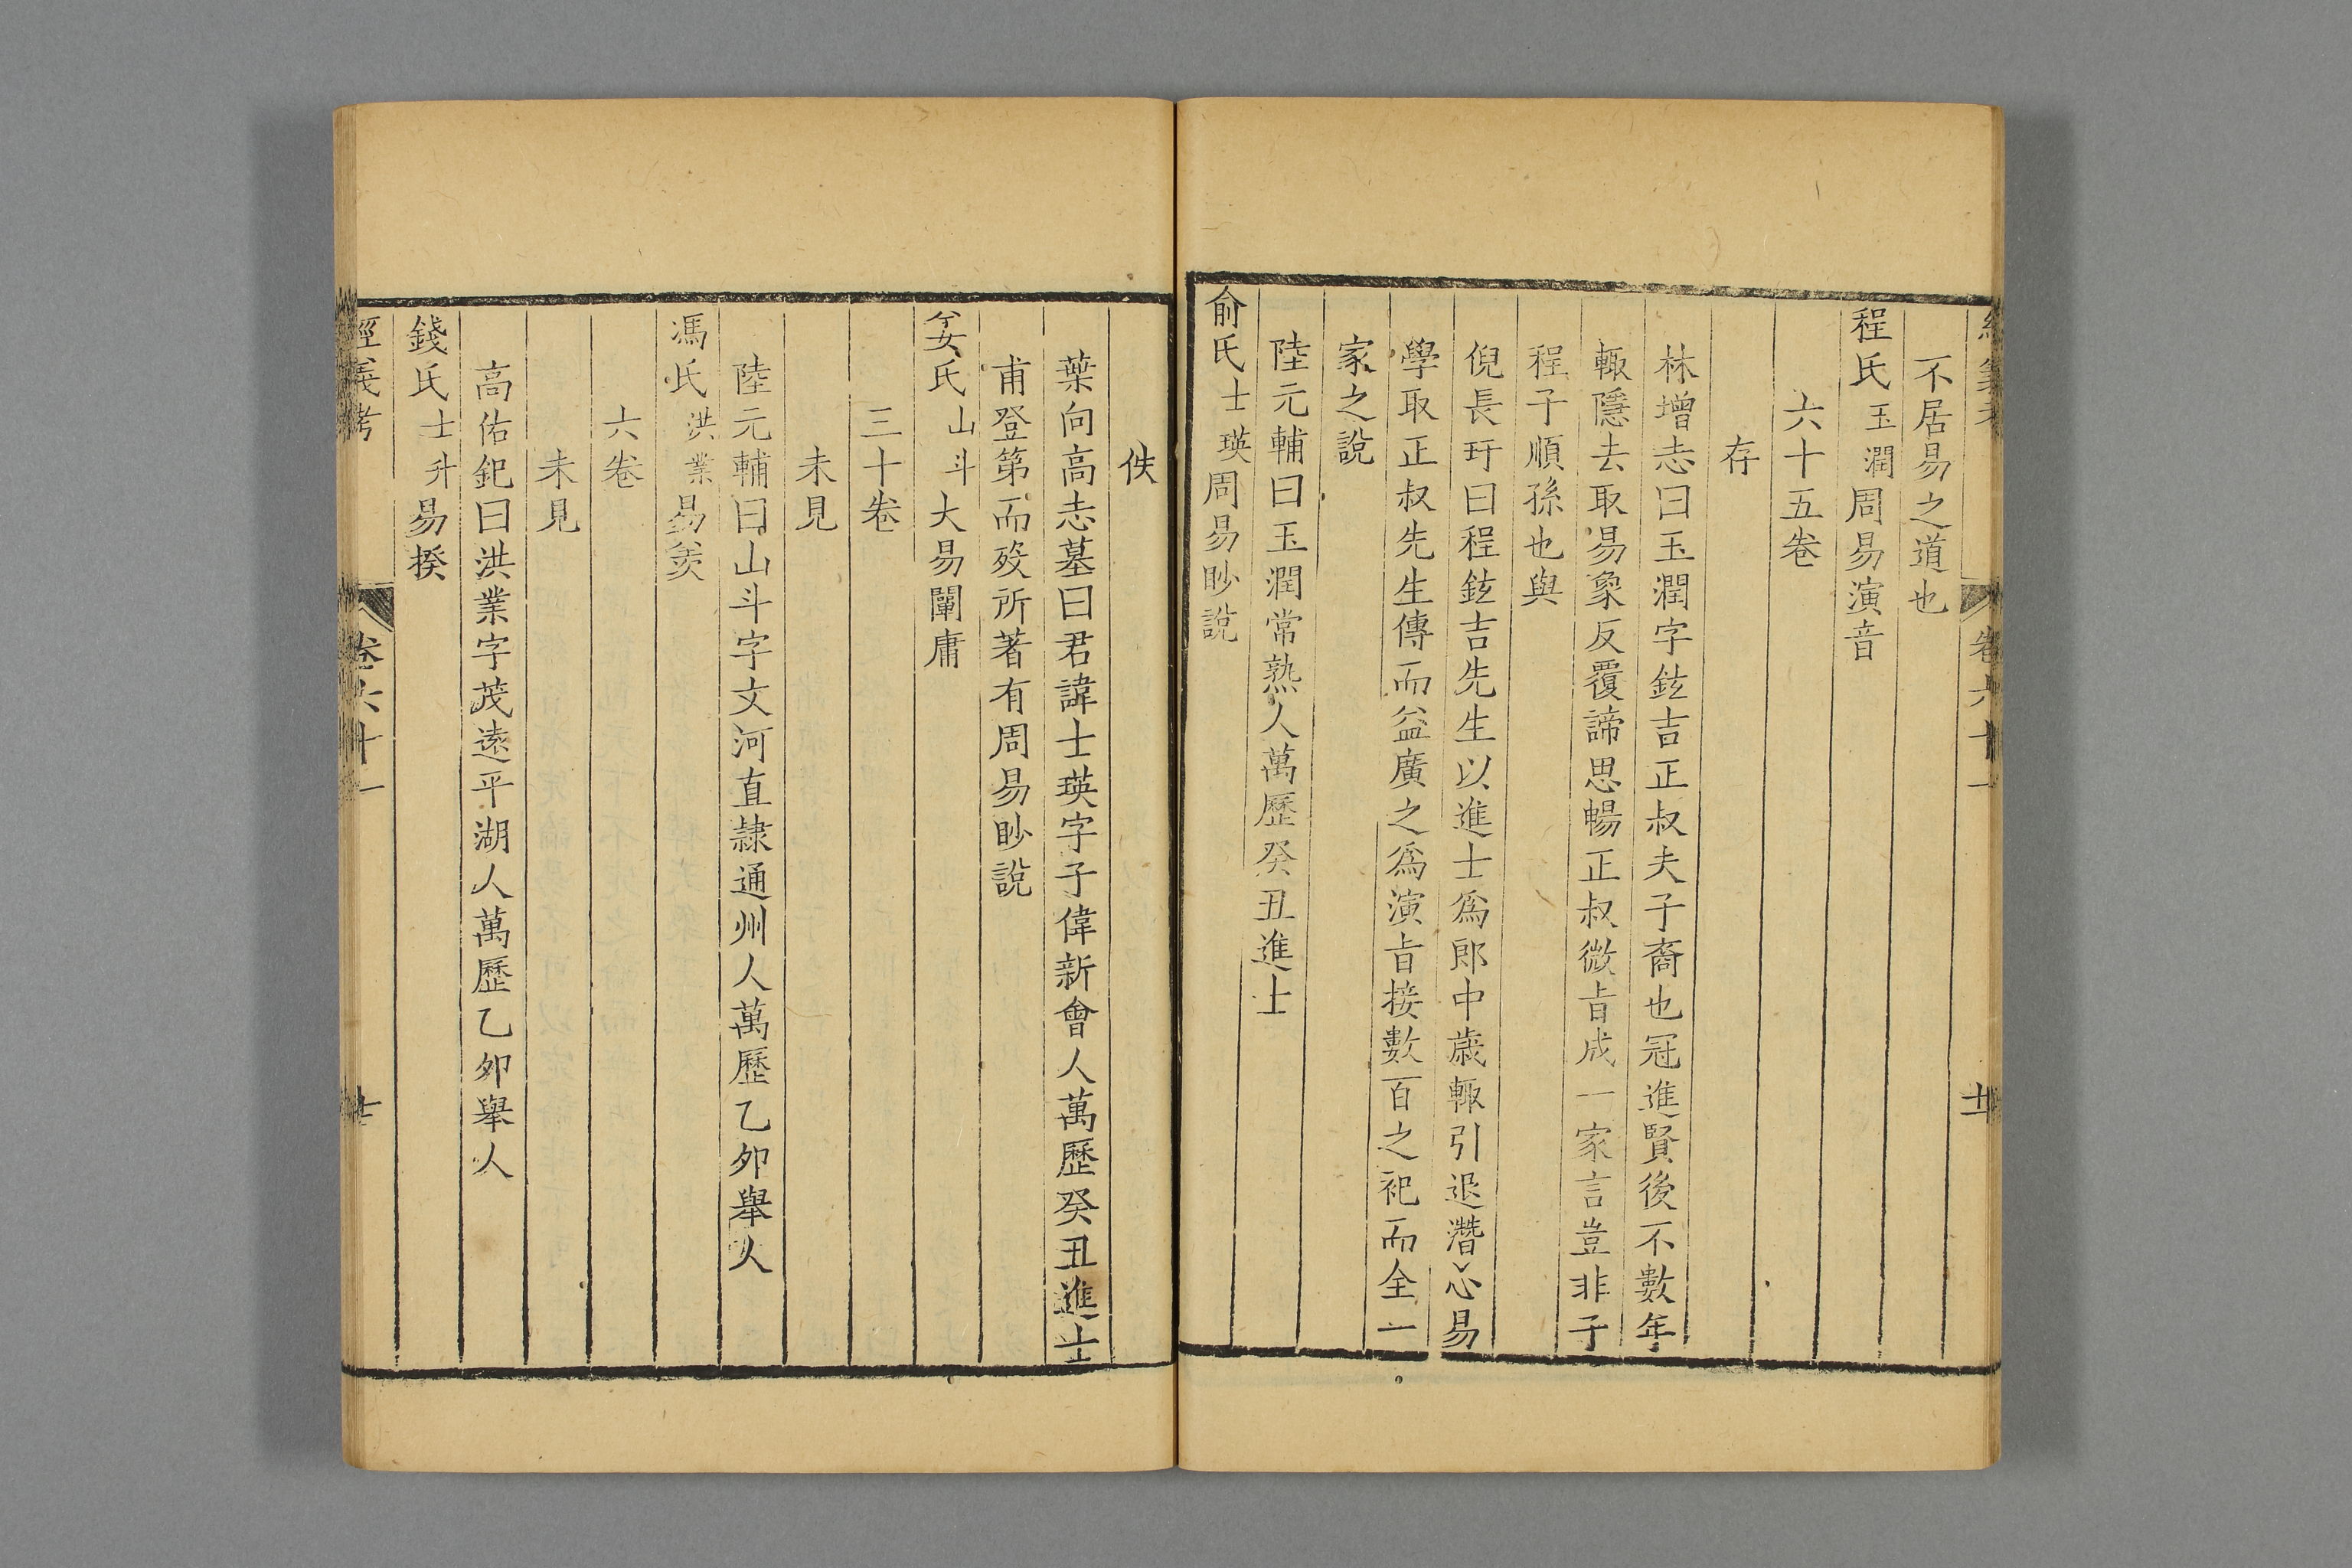 卷六十一
不居易之道也
程氏玉潤周易演旨
六十五卷
存
林增志曰玉潤字鉉吉正叔夫子裔也冠進賢後不數年
輙隱去取易象反覆諦思暢正叔微旨成一家言豈非于
程子順孫也與
倪長玗曰程鉉吉先生以進士爲郎中歲輙引退潛心易
學取正叔先生傳而益廣之爲演旨接數百之祀而全一
家之說
陸元輔曰玉潤常熟人萬歷癸丑進士
俞氏士瑛周易眇說
佚
葉向高志墓曰君諱士瑛字子偉新會人萬歷癸丑進士
甫登第而歿所著有周易眇說
姜氏山斗大易闡庸
三十卷
未見
陸元輔曰山斗字文河直隷通州人萬歷乙夘舉人
馮氏洪業易羨
六卷
未見
高佑釲曰洪業字茂遠平湖人萬歷乙夘舉人
錢氏士升易揆
經義考
卷六十一